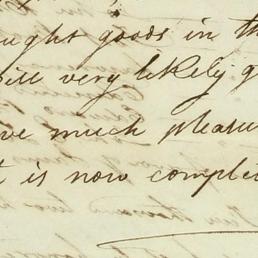 ught goods in th
ill very likely g
ve much pleasu
t is now comple